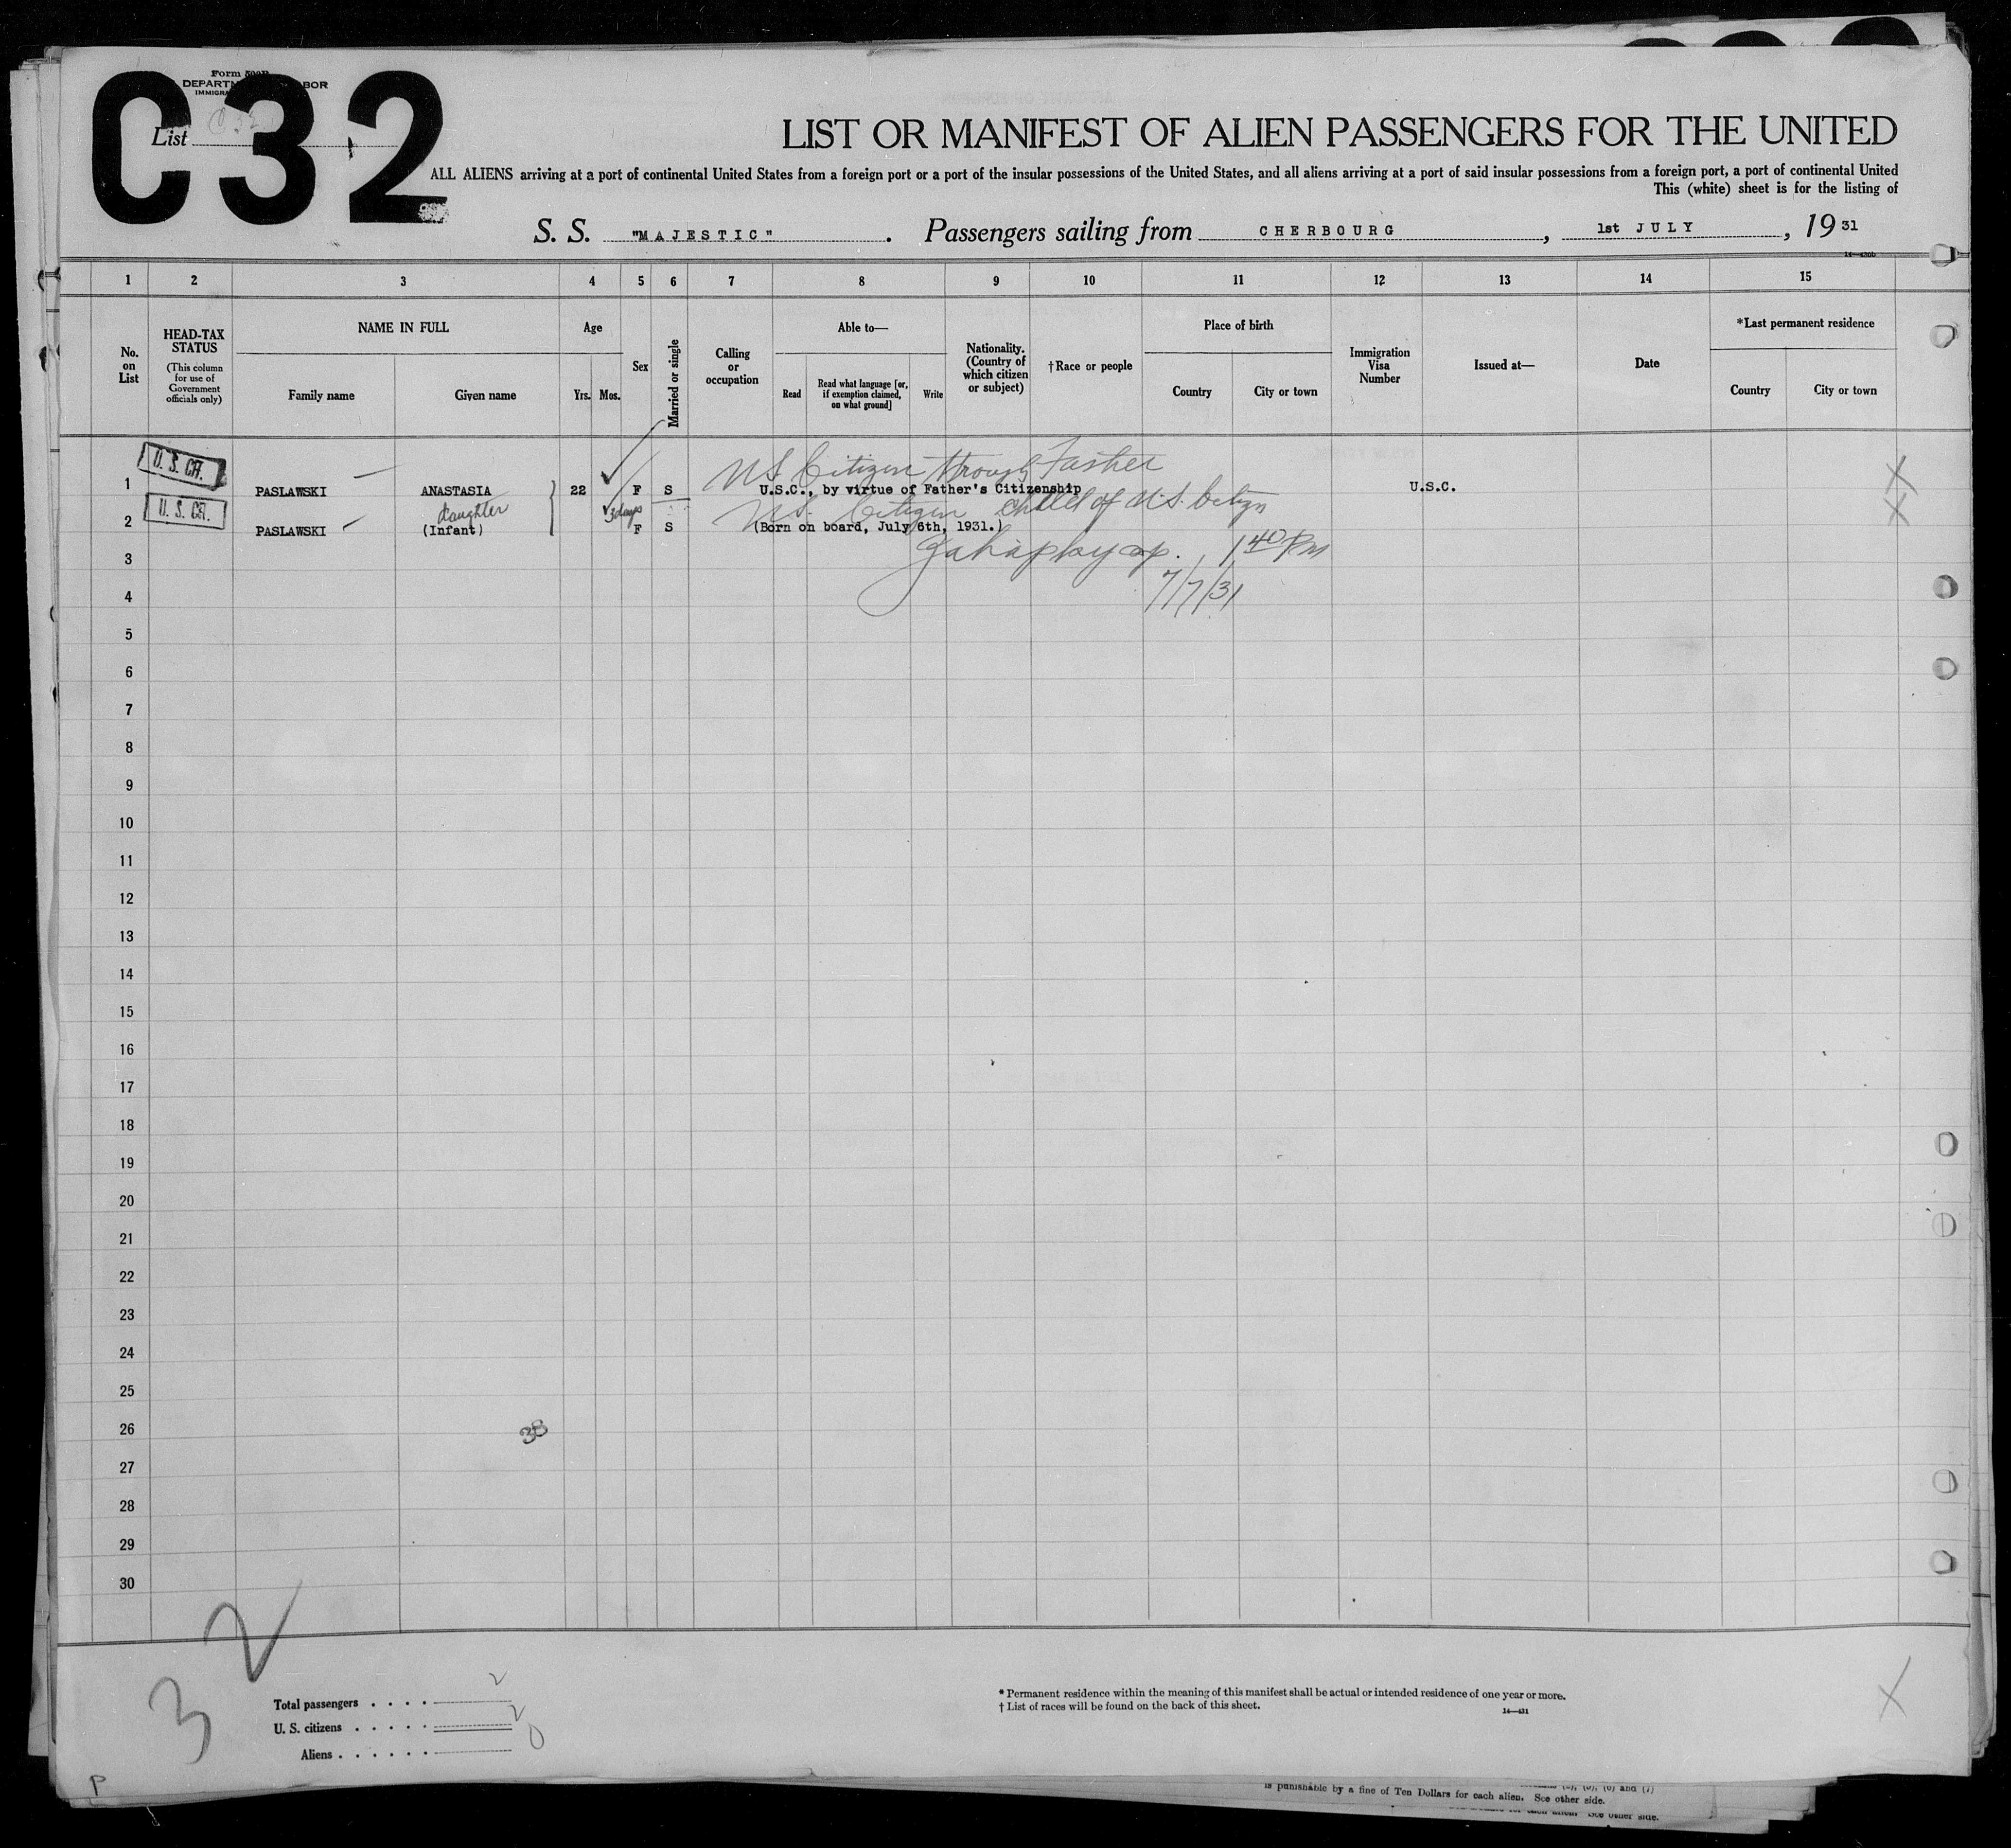 C32
Form 500B
DEPARTM BOR
IMMIGRA
List C32
LIST OR MANIFEST OF ALIEN PASSENGERS FOR THE UNITED
ALL ALIENS arriving at a port of continental United States from a foreign port or a port of the insular possessions of the United States, and all aliens arriving at a port of said insular possessions from a foreign port, a port of continental United
This (white) sheet is for the listing of
S. S. "MAJESTIC". Passengers sailing from CHERBOURG, 1st JULY, 1931
14—430b
1 2 3 4 5 6 7 8 9 10 11 12 13 14 15
No. on List
HEAD-TAX STATUS
(This column for use of Government officials only)
NAME IN FULL
Family name Given name
Age
Yrs. Mos.
Sex
Married or single
Calling or occupation
Able to—
Read
Read what language [or, if exemption claimed, on what ground]
Write
Nationality. (Country of which citizen or subject)
†Race or people
Place of birth
Country City or town
Immigration Visa Number
Issued at—
Date
*Last permanent residence
Country City or town
U. S. CIT.
US Citizen through Father
1 PASLAWSKI ANASTASIA 22 F S U.S.C., by virtue of Father's Citizenship U.S.C. X
U. S. CIT.
daughter 3 days US. Citizen child of U.S. Citizn X
2 PASLAWSKI (Infant) F S (Born on board, July 6th, 1931.)
3 1 40 PM
4 7/7/31
5
6
7
8
9
10
11
12
13
14
15
16
17
18
19
20
21
22
23
24
25
26 38
27
28
29
30
2
3
Total passengers . . . . 2
U. S. citizens . . . . . 2
Aliens . . . . . . 0
* Permanent residence within the meaning of this manifest shall be actual or intended residence of one year or more.
† List of races will be found on the back of this sheet.
14—431
X
P
(6) and (7)
is punishable by a fine of Ten Dollars for each alien. See other side.
See other side.